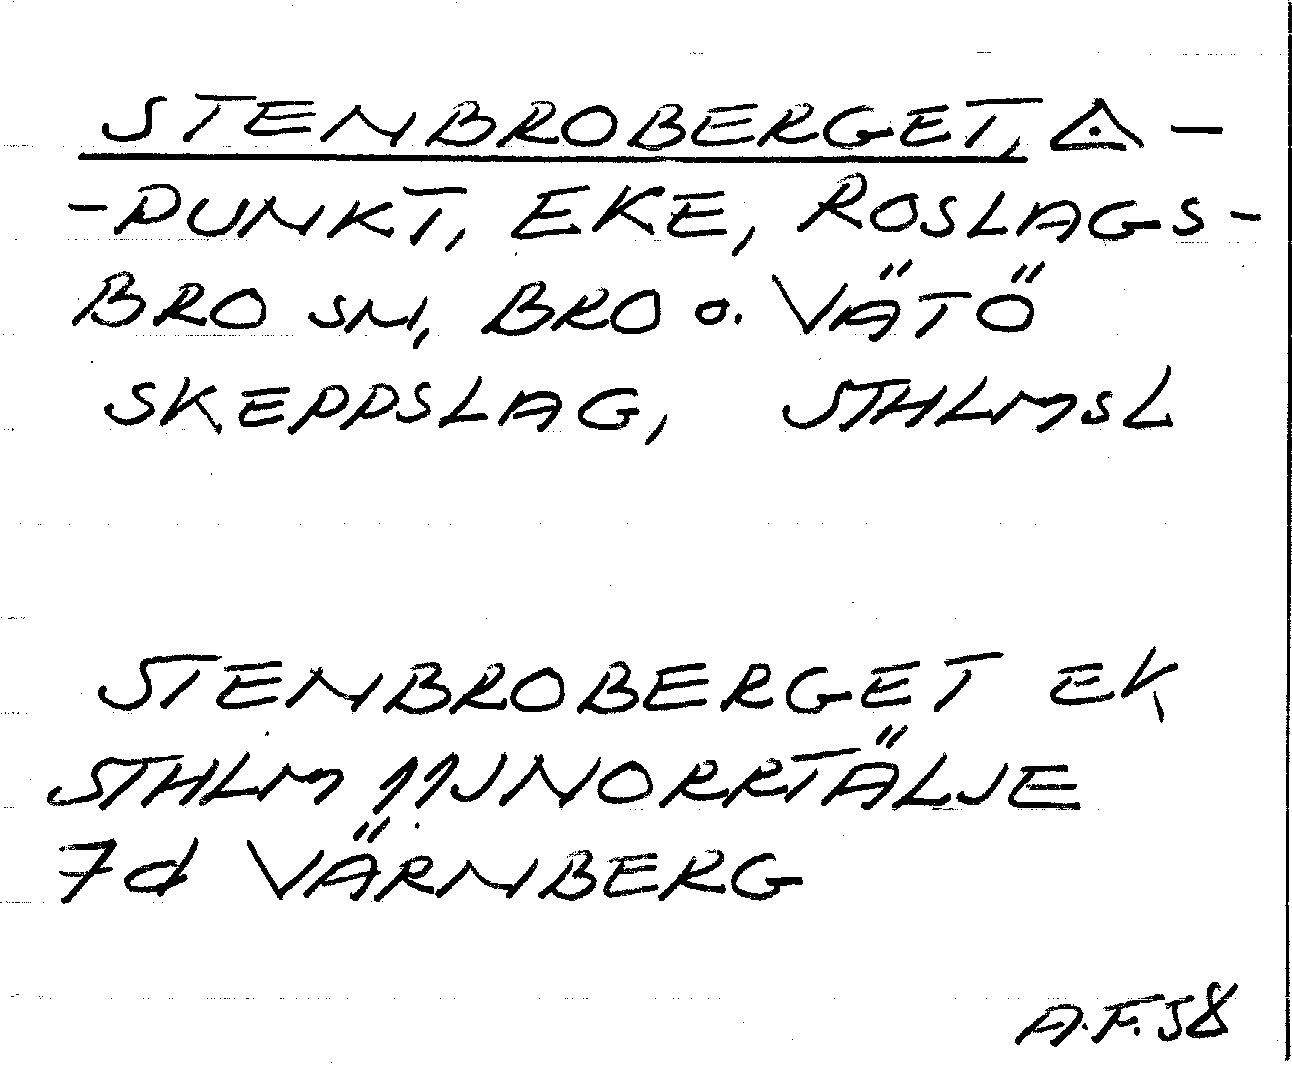 STENBROBERGET, ◬-
-PUNKT, EKE, ROSLAGS-
BRO SN, BRO O. VÄTÖ
SKEPPSLAG, STHLMSL
STENBROBERGET EK
STHLM 11J NORRTÄLJE
7d VÄRNBERG
A.F. 58